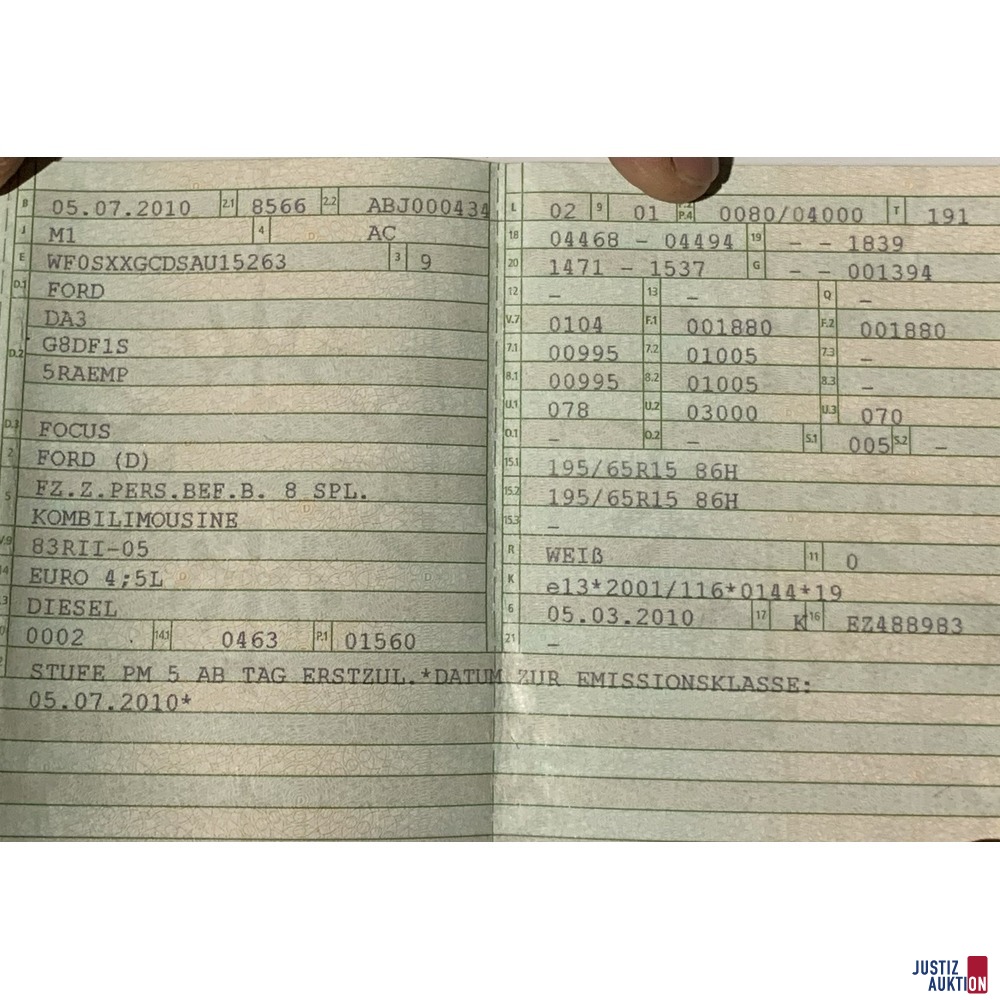 B 05.07.2010 2.1 8566 2.2 ABJ000434
J M1 4 AC
E WF0SXXGCDSAU15263 3 9
D.1 FORD
DA3
D.2 G8DF1S
5RAEMP
D.3 FOCUS
2 FORD (D)
5 FZ.Z.PERS.BEF.B. 8 SPL.
KOMBILIMOUSINE
V.9 83RII-05
14 EURO 4;5L
P.3 DIESEL
10 0002 14.1 0463 P.1 01560
L 02 9 01 P.2 P.4 0080/04000 T 191
18 04468 – 04494 19 – – 1839
20 1471 – 1537 G – – 001394
12 – 13 – Q –
V.7 0104 F.1 001880 F.2 001880
7.1 00995 7.2 01005 7.3 –
8.1 00995 8.2 01005 8.3 –
U.1 078 U.2 03000 U.3 070
O.1 – O.2 – S.1 005 S.2 –
15.1 195/65R15 86H
15.2 195/65R15 86H
15.3 –
R WEIß 11 0
K e13*2001/116*0144*19
6 05.03.2010 17 K 16 EZ488983
21 –
STUFE PM 5 AB TAG ERSTZUL.*DATUM ZUR EMISSIONSKLASSE:
05.07.2010*
JUSTIZ
AUKTION